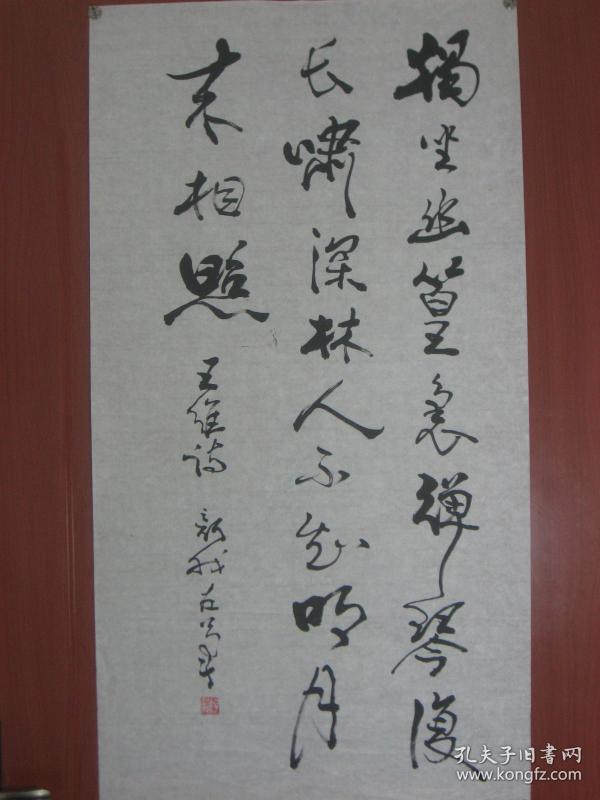 獨坐幽篁裏彈琴復
长嘯深林人不知明月
来相照
王維诗
孔夫子旧書网
www.kongfz.com